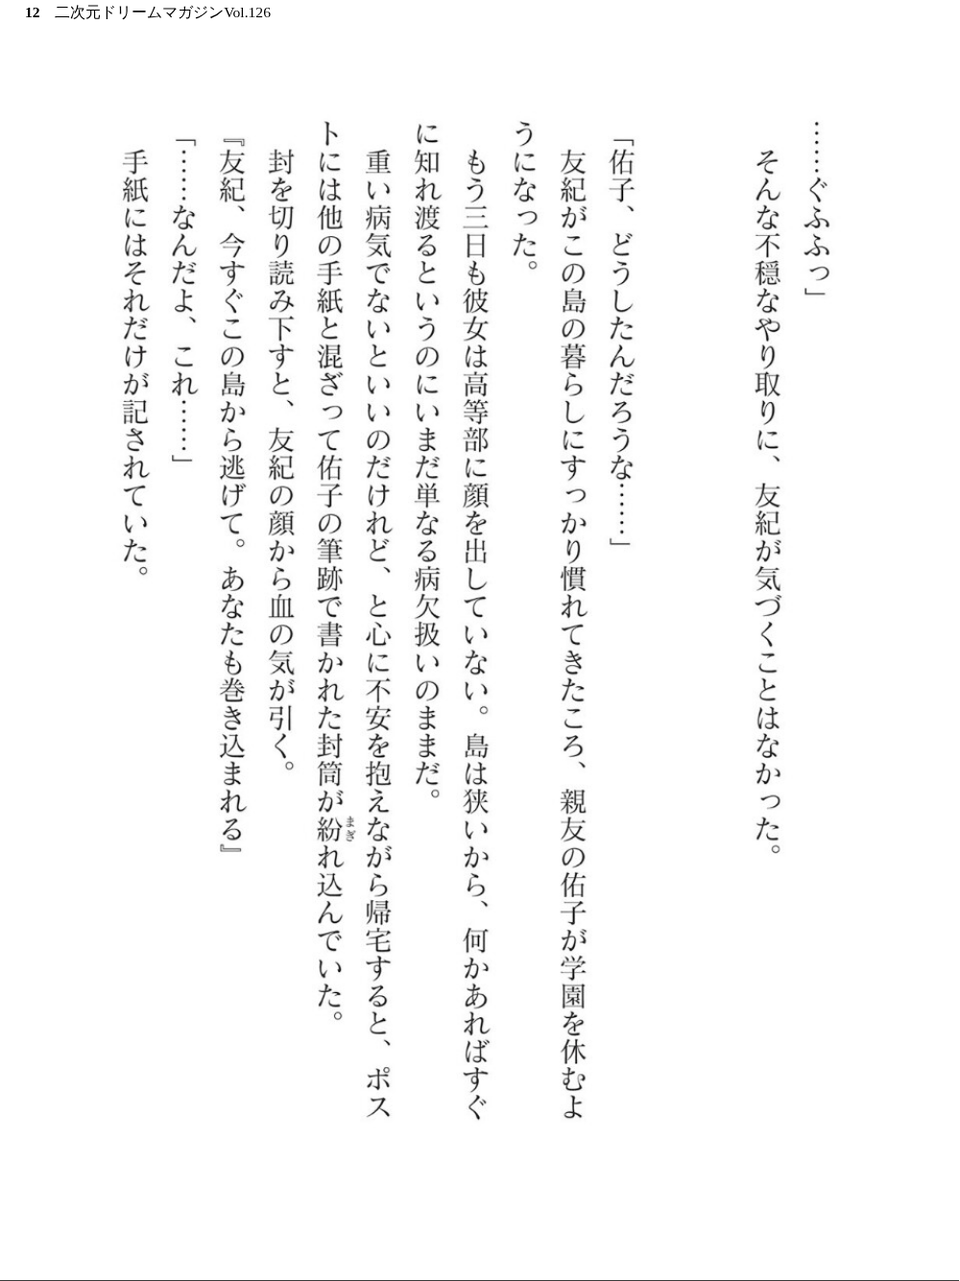 12 二次元ドリームマガジンVol.126
……ぐふふっ」
そんな不穏なやり取りに、友紀が気づくことはなかった。
「佑子、どうしたんだろうな……」
友紀がこの島の暮らしにすっかり慣れてきたころ、親友の佑子が学園を休むよ
うになった。
もう三日も彼女は高等部に顔を出していない。島は狭いから、何かあればすぐ
に知れ渡るというのにいまだ単なる病欠扱いのままだ。
重い病気でないといいのだけれど、と心に不安を抱えながら帰宅すると、ポス
トには他の手紙と混ざって佑子の筆跡で書かれた封筒が紛れ込んでいた。
まぎ
封を切り読み下すと、友紀の顔から血の気が引く。
『友紀、今すぐこの島から逃げて。あなたも巻き込まれる』
「……なんだよ、これ……」
手紙にはそれだけが記されていた。